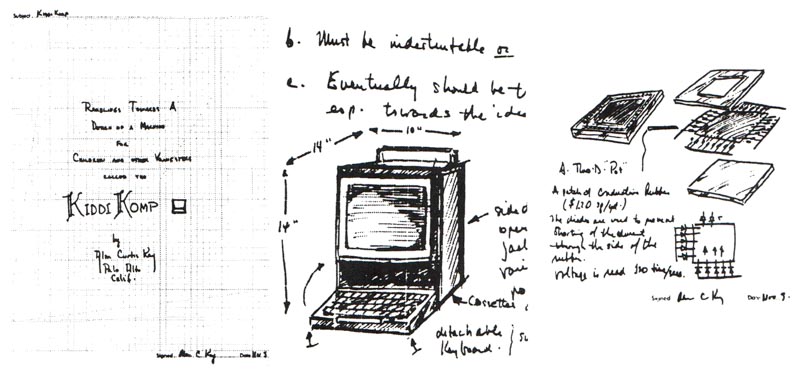 Subject. KIDDIKOMP
RAMBLINGS TOWARDS A
DESIGN OF A MACHINE
FOR
CHILDREN AND OTHER YOUNGSTERS
CALLED THE
KIDDIKOMP
by
Alan Curtis Kay
Palo Alto
Calif.
Signed. Alan C. Kay Date Nov. 9.
b. Must be indestructable or
c. Eventually should be t
esp. towards the idea
14"
10"
14"
side o
open
jack
vari
po
Cassettes
detachable
Keyboard.
A. Two-D "Pot"
A patch of conductive Rubber
The diodes are used to prevent
shorting of the element
through the side of the
rubber.
Voltage is read 120 times/sec.
Signed Alan C Kay Date Nov. 9.